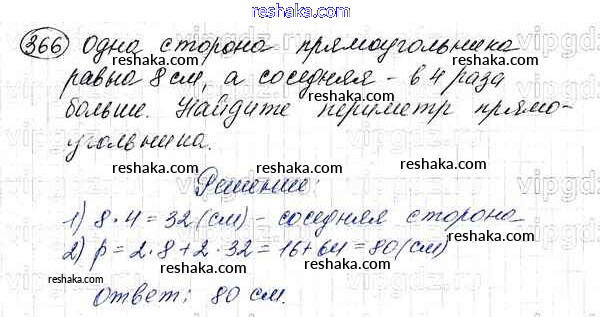 reshaka.com
366 Одна сторона прямоугольника
равна 8 см, а соседняя - в 4 раза
больше. Найдите периметр прямо-
угольника.
Решение:
1) 8 · 4 = 32 (см) - соседняя сторона
2) P = 2 · 8 + 2 · 32 = 16 + 64 = 80 (см)
Ответ: 80 см.
reshaka.com
reshaka.com
reshaka.com
reshaka.com
reshaka.com
reshaka.com
reshaka.com
reshaka.com
reshaka.com
reshaka.com
reshaka.com
reshaka.com